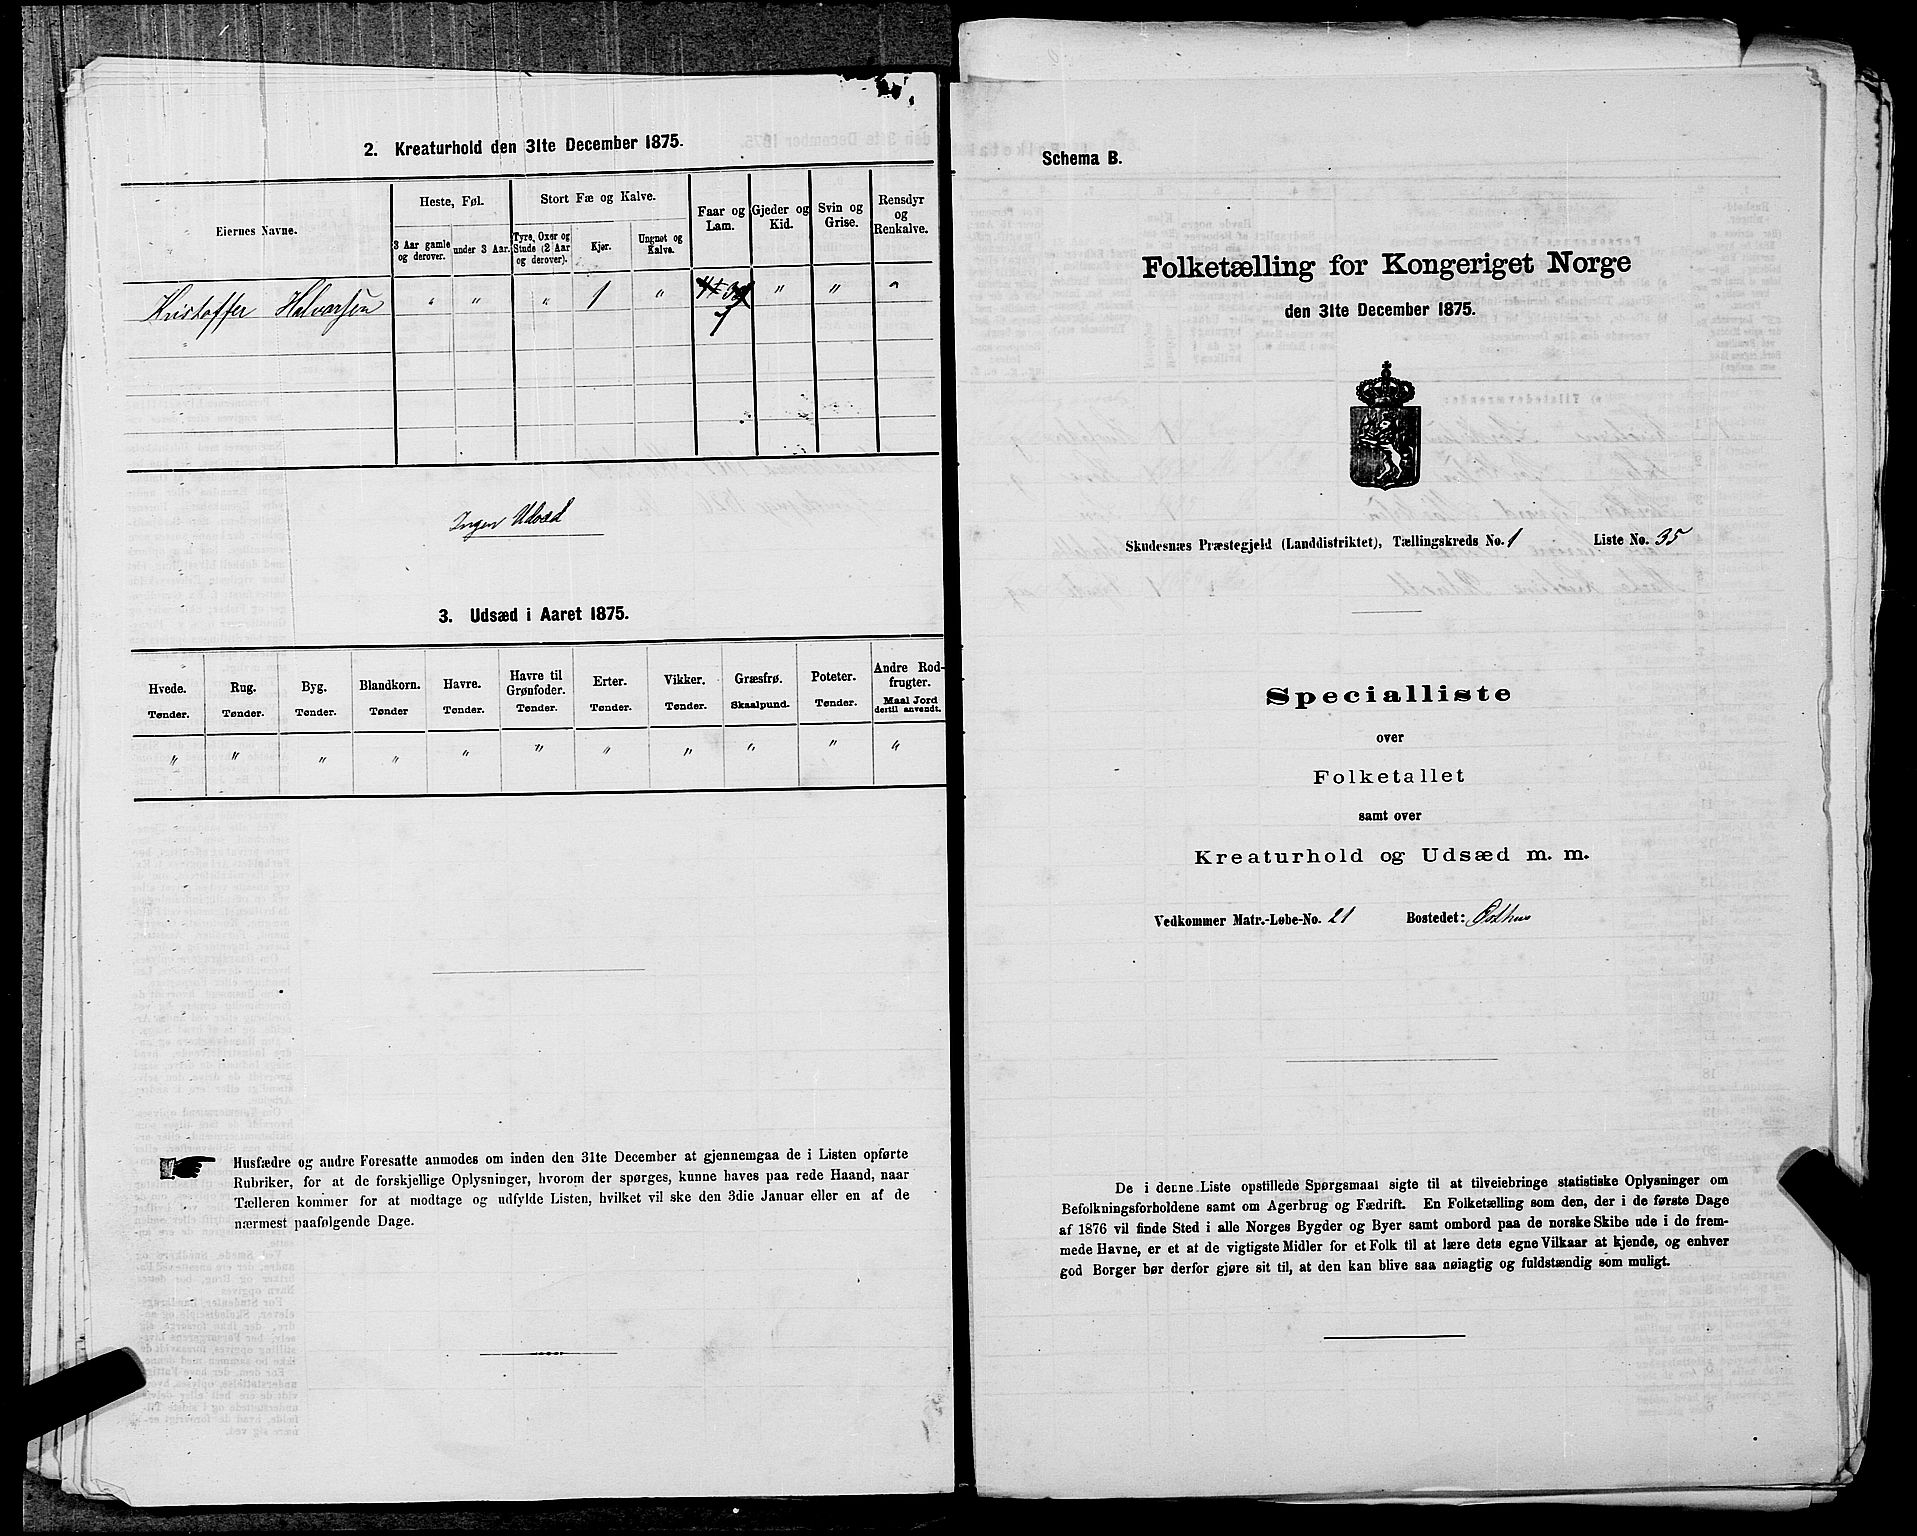 2. Kreaturhold den 31te December 1875.
Eiernes Navne.
Heste, Føl.
Stort Fæ og Kalve.
Faar og Lam.
Gjeder og Kid.
Svin og Grise.
Rensdyr og Renkalve.
3 Aar gamle og derover.
under 3 Aar.
Tyre, Oxer og Stude (2 Aar og derover).
Kjør.
Ungnøt og Kalve.
Kristoffer Halvorsen " " " 1 " 7 " " "
Ingen Udsæd
3. Udsæd i Aaret 1875.
Hvede. Rug. Byg. Blandkorn. Havre. Havre til Grønfoder. Erter. Vikker. Græsfrø. Poteter. Andre Rodfrugter.
Tønder. Tønder. Tønder. Tønder Tønder. Tønder. Tønder. Tønder. Skaalpund. Tønder. Maal Jord dertil anvendt.
" " " " " " " " " " "
Husfædre og andre Foresatte anmodes om inden den 31te December at gjennemgaa de i Listen opførte
Rubriker, for at de forskjellige Oplysninger, hvorom der spørges, kunne haves paa rede Haand, naar
Tælleren kommer for at modtage og udfylde Listen, hvilket vil ske den 3die Januar eller en af de
nærmest paafølgende Dage.
Schema B.
Folketælling for Kongeriget Norge
den 31te December 1875.
Skudesnæs Præstegjeld (Landdistriktet), Tællingskreds No. 1 Liste No. 35
Specialliste
over
Folketallet
samt over
Kreaturhold og Udsæd m. m.
Vedkommer Matr.-Løbe-No. 21 Bostedet: Østhus
De i denne Liste opstillede Spørgsmaal sigte til at tilveiebringe statistiske Oplysninger om
Befolkningsforholdene samt om Agerbrug og Fædrift. En Folketælling som den, der i de første Dage
af 1876 vil finde Sted i alle Norges Bygder og Byer samt ombord paa de norske Skibe ude i de frem-
mede Havne, er et af de vigtigste Midler for et Folk til at lære dets egne Vilkaar at kjende, og enhver
god Borger bør derfor gjøre sit til, at den kan blive saa nøiagtig og fuldstændig som muligt.